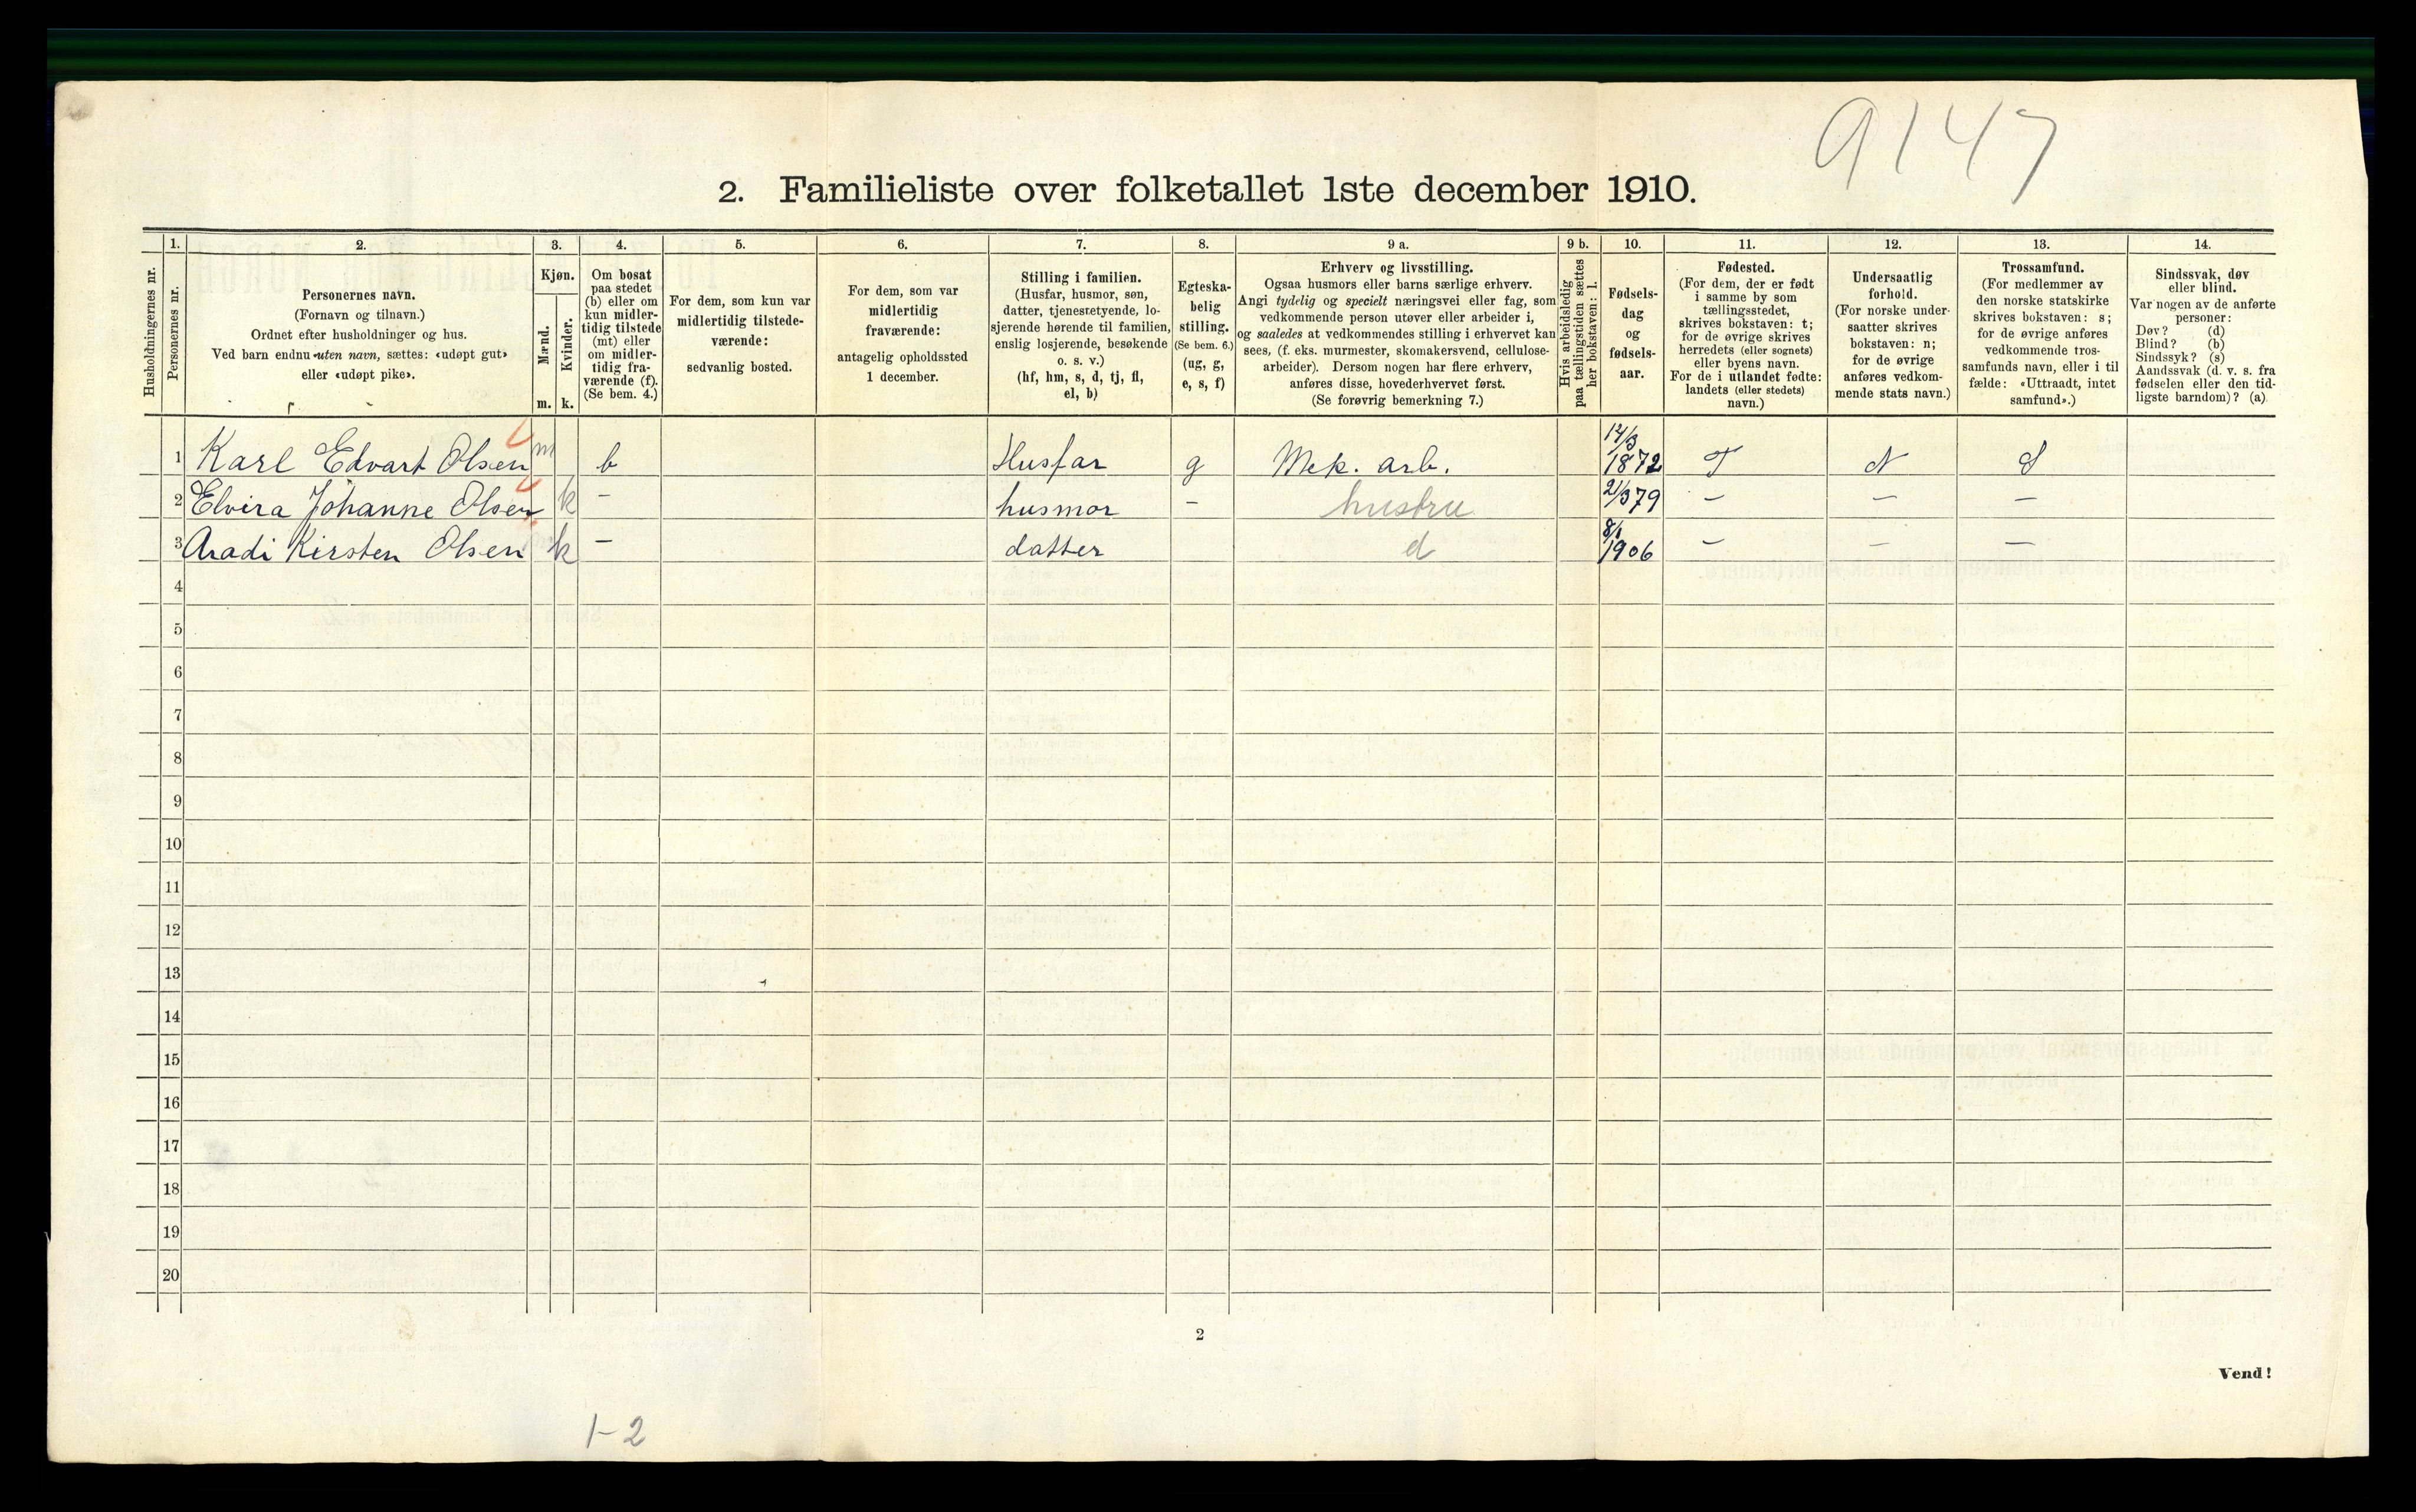 9147
2. Familieliste over folketallet 1ste december 1910.
Husholdningernes nr.
1.
Personernes nr.
2.
Personernes navn.
(Fornavn og tilnavn.)
Ordnet efter husholdninger og hus.
Ved barn endnu uten navn, sættes: «udøpt gut»
eller «udøpt pike».
3.
Kjøn.
Mænd.
m.
Kvinder.
k.
4.
Om bosat
paa stedet
(b) eller om
kun midler-
tidig tilstede
(mt) eller
om midler-
tidig fra-
værende (f).
(Se bem. 4.)
5.
For dem, som kun var
midlertidig tilstede-
værende:
sedvanlig bosted.
6.
For dem, som var
midlertidig
fraværende:
antagelig opholdssted
1 december.
7.
Stilling i familien.
(Husfar, husmor, søn,
datter, tjenestetyende, lo-
sjerende hørende til familien,
enslig losjerende, besøkende
o. s. v.)
(hf, hm, s, d, tj, fl,
el, b)
8.
Egteska-
belig
stilling.
(Se bem. 6.)
(ug, g,
e, s, f)
9 a.
Erhverv og livsstilling.
Ogsaa husmors eller barns særlige erhverv.
Angi tydelig og specielt næringsvei eller fag, som
vedkommende person utøver eller arbeider i,
og saaledes at vedkommendes stilling i erhvervet kan
sees, (f. eks. murmester, skomakersvend, cellulose-
arbeider). Dersom nogen har flere erhverv,
anføres disse, hovederhvervet først.
(Se forøvrig bemerkning 7.)
9 b.
Hvis arbeidsledig
paa tællingstiden sættes
her bokstaven: l.
10.
Fødsels-
dag
og
fødsels-
aar.
11.
Fødested.
(For dem, der er født
i samme by som
tællingsstedet,
skrives bokstaven: t;
for de øvrige skrives
herredets (eller sognets)
eller byens navn.
For de i utlandet fødte:
landets (eller stedets)
navn.)
12.
Undersaatlig
forhold.
(For norske under-
saatter skrives
bokstaven: n;
for de øvrige
anføres vedkom-
mende stats navn.)
13.
Trossamfund.
(For medlemmer av
den norske statskirke
skrives bokstaven: s;
for de øvrige anføres
vedkommende tros-
samfunds navn, eller i til
fælde: «Uttraadt, intet
samfund».)
14.
Sindssvak, døv
eller blind.
Var nogen av de anførte
personer:
Døv? (d)
Blind? (b)
Sindssyk? (s)
Aandssvak (d. v. s. fra
fødselen eller den tid-
ligste barndom)? (a)
1 Karl Edvart Olsen m b Husfar g Mek. arb. 14/3 1872 T N S
2 Elvira Johanne Olsen k - husmor - hustru 21/3 79 - - -
3 Aradi Kirsten Olsen k - datter d 8/1 1906 - - -
4
5
6
7
8
9
10
11
12
13
14
15
16
17
18
19
20
2
Vend!
1-2